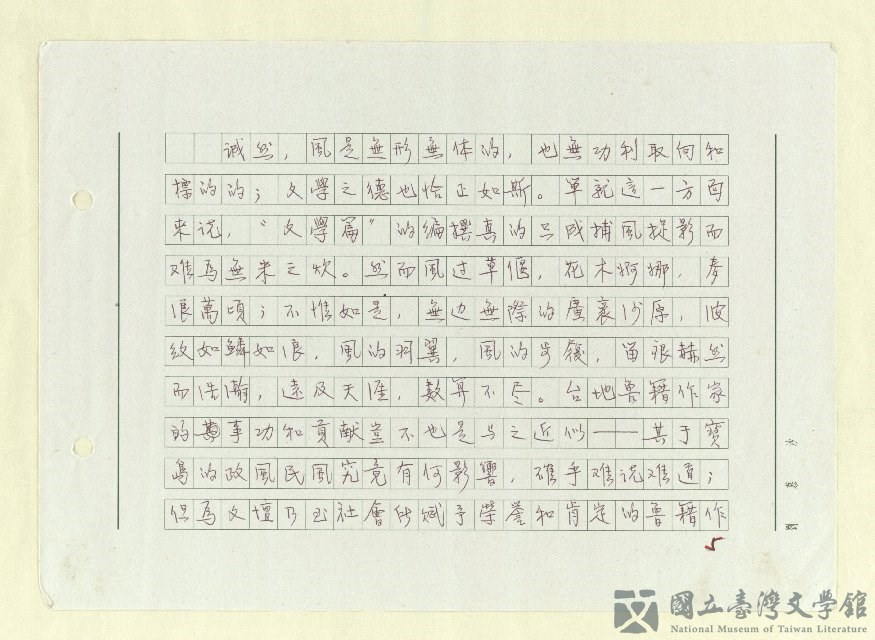 诚然，風是無形無体的，也無功利取向和
標的的；文學之德也恰正如斯。單就這一方面
来说，“文學篇”的编撰真的只成捕風捉影而
难為無米之炊。然而風过草偃，花木婀娜，麥
浪萬頃；不惟如是，無边無際的廣袤沙原，波
纹如鳞如浪，風的羽翼，風的步履，留痕赫然
而浩瀚，遠及天涯，数算不尽。台地鲁籍作家
的事功和貢献豈不也是与之近似——其于寶
島的政風民風究竟有何影響，確乎难说难道；
但為文壇乃至社會所赋予榮誉和肯定的鲁籍作
5
國立臺灣文學館
National Museum of Taiwan Literature